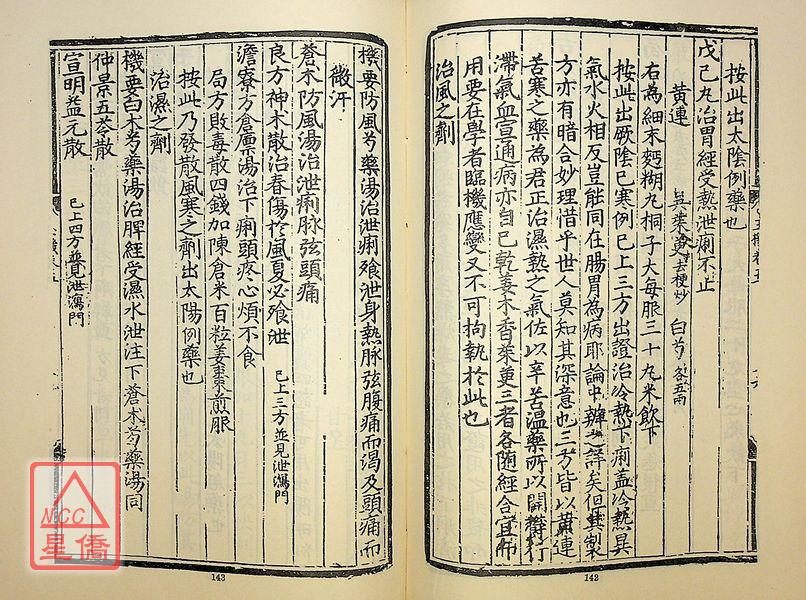 按此出太陰例藥也
戊己丸治胃經受熱泄痢不止
黃連 吳茱萸去梗炒 白芍各五兩
右為細末麪糊丸桐子大每服三十丸米飲下
按此出厥陰已寒例已上三方出證治冷熱下痢盖冷熱異
氣水火相反豈能同在腸胃為病耶論中辨之詳矣但其製
方亦有暗合妙理惜乎世人莫知其深意也三方皆以黃連
苦寒之藥為君正治濕熱之氣佐以辛苦溫藥所以開欝行
滯氣血宣通病亦自已乾姜木香茱萸三者各随經合宜而
用要在學者臨機應變又不可拘執於此也
治風之劑
142
機要防風芍藥湯治泄痢飱泄身熱脉弦腹痛而渴及頭痛而
微汗
蒼朮防風湯治泄痢脉弦頭痛
良方神朮散治春傷於風夏必飱泄 已上三方並見泄瀉門
澹寮方倉廩湯治下痢頭疼心煩不食
局方敗毒散四錢加陳倉米百粒姜棗煎服
按此乃發散風寒之劑出太陽例藥也
治濕之劑
機要白朮芍藥湯治脾經受濕水泄注下蒼朮芍藥湯同
仲景五苓散
宣明益元散 已上四方並見泄瀉門
143
NCC
星僑